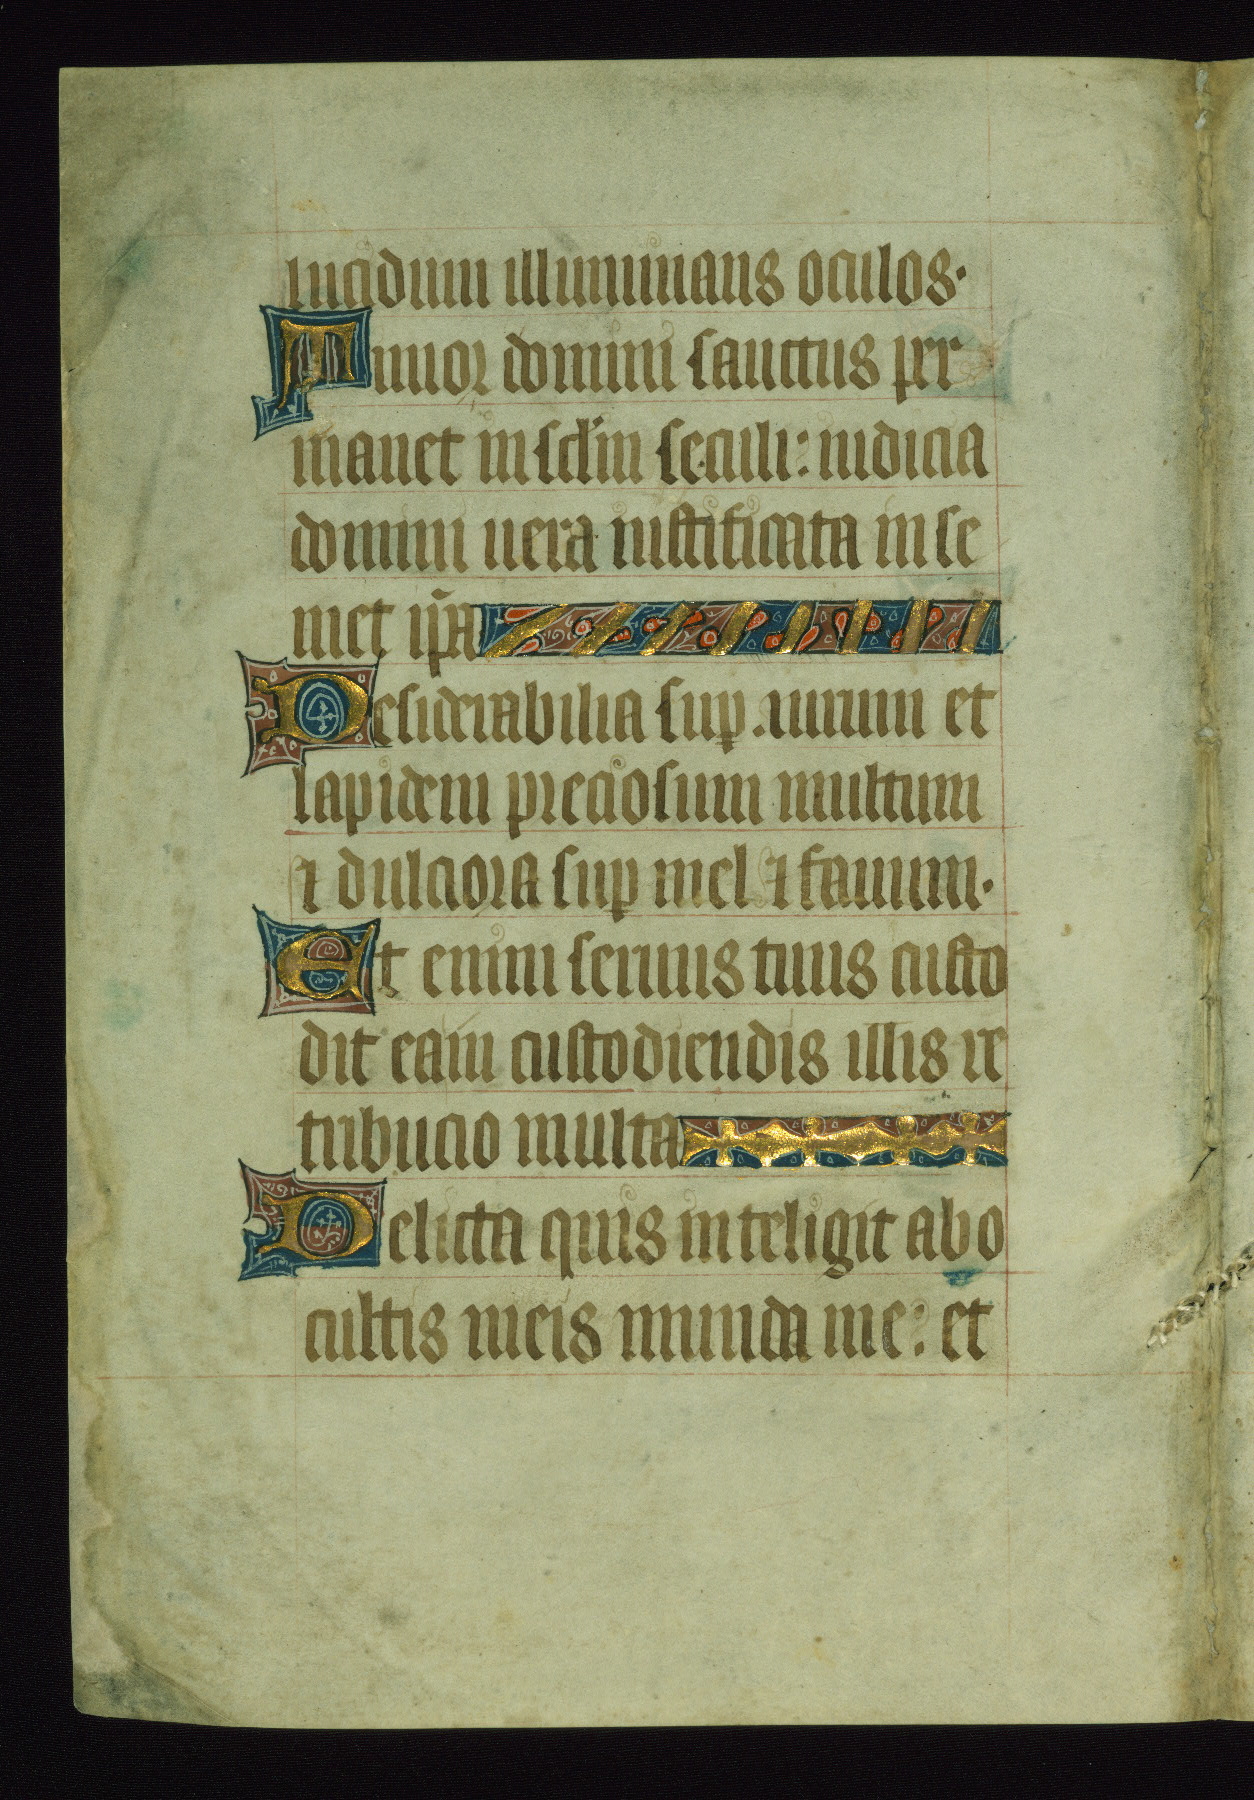 lucidum illuminans oculos·
Timor domini sanctus per
manet in sclm seculi: iudicia
domini uera iustificata in se
met ip̄a
Desiderabilia sup. aurum et
lapidem preciosum multum
⁊ dulciora sup mel ⁊ fauum·
Et enim seruus tuus custo
dit eam custodiendis illis re
tribucio multa
Delicta quis inteligit abo
cultis meis munda me: et